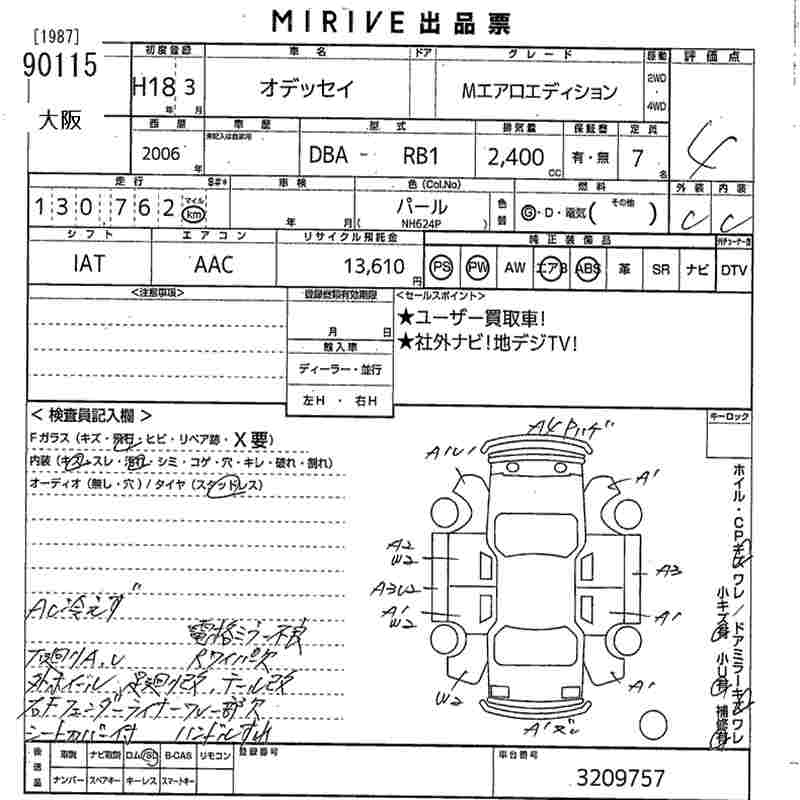 MIRIVE 出品票
[1987]
90115
大阪
初度登録 車名 ドア グレード 駆動 評価点
H18 3 オデッセイ Mエアロエディション 2WD ・ 4WD
年 月
4
西暦 車歴 型式 排気量 保証書 定員
未記入は自家用
2006 年 DBA - RB1 2,400 CC 有・無 7 名
走行 S#* 車検 色(Col.No) 燃料 外装 内装
130,762 マイル km 年 月 パール 色替 G・D・電気( その他 ) C C
( NH624P )
シフト エアコン リサイクル預託金 純正装備品
IAT AAC 13,610 円 PS PW AW エアB ABS 革 SR ナビ DTV
<注意事項> 登録書類有効期限 <セールスポイント>
月 日
★ユーザー買取車!
★社外ナビ!地デジTV!
輸入車
ディーラー・並行
左H ・ 右H
< 検査員記入欄 > キーロック
Fガラス(キズ・飛石・ヒビ・リペア跡・X要)
内装(キズ・スレ・汚れ・シミ・コゲ・穴・キレ・破れ・割れ)
オーディオ(無し・穴)/タイヤ(スタッドレス)
A4
A1
A1
A2
W2
A3
A3
A1
W2
A1
W2
A1
A1
ホイル・CPキズワレ/ドアミラーキズワレ
小キズ有 小U有 補修有
AC冷えず
電格ミラー不良
下廻りA,U Rワイパー欠
外ホイール 足廻り改、テール改
右Fフェンダーライナークレー部欠
シートカバー付 ハンドルすれ
後送品 取説 ナビ取説 ロム/SD B-CAS リモコン 登録番号 車台番号
ナンバー スペアキー キーレス スマートキー
3209757